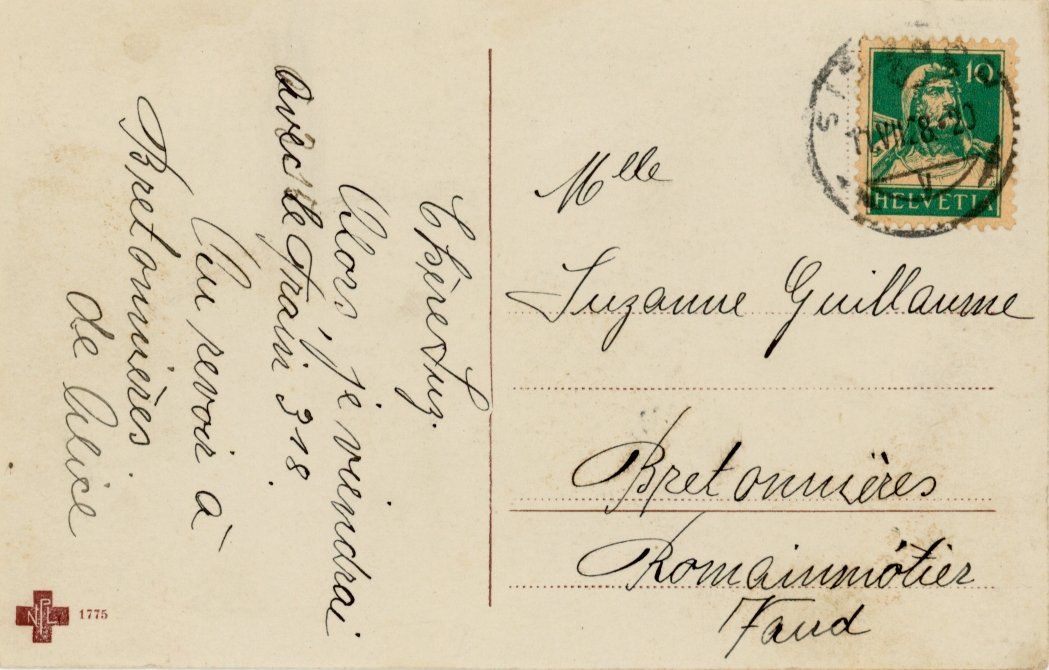 Chère Suz.
Alors, je viendrai
avec le train 318.
Au revoir à
Bretonnières
de Alice
Mlle
Suzanne Guillaume
Bretonnières
Romainmôtier
Vaud
10
HELVETIA
NPL
1775